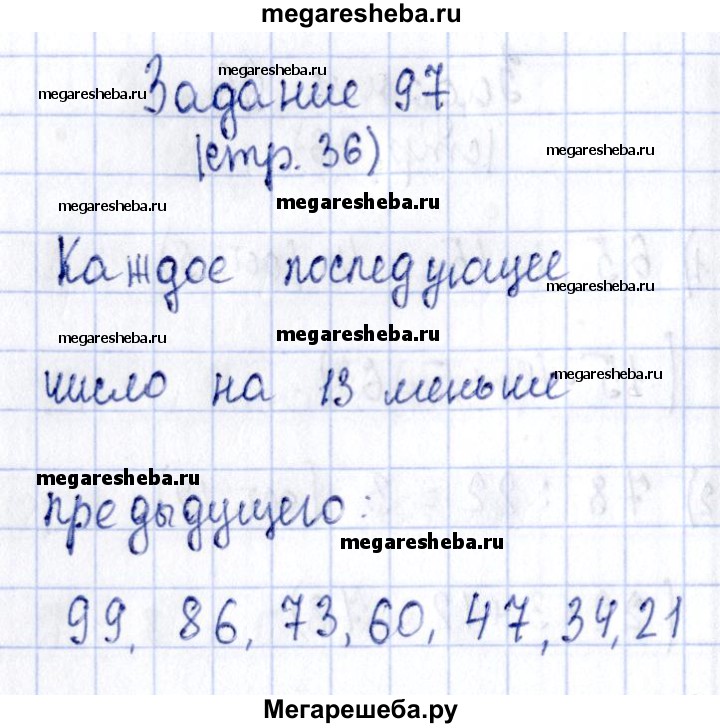 megaresheba.ru
megaresheba.ru
megaresheba.ru
Задание 97
(стр. 36)
megaresheba.ru
megaresheba.ru
megaresheba.ru
Каждое последующее
megaresheba.ru
megaresheba.ru
megaresheba.ru
megaresheba.ru
число на 13 меньше
megaresheba.ru
предыдущего:
megaresheba.ru
99, 86, 73, 60, 47, 34, 21
Мегарешеба.ру